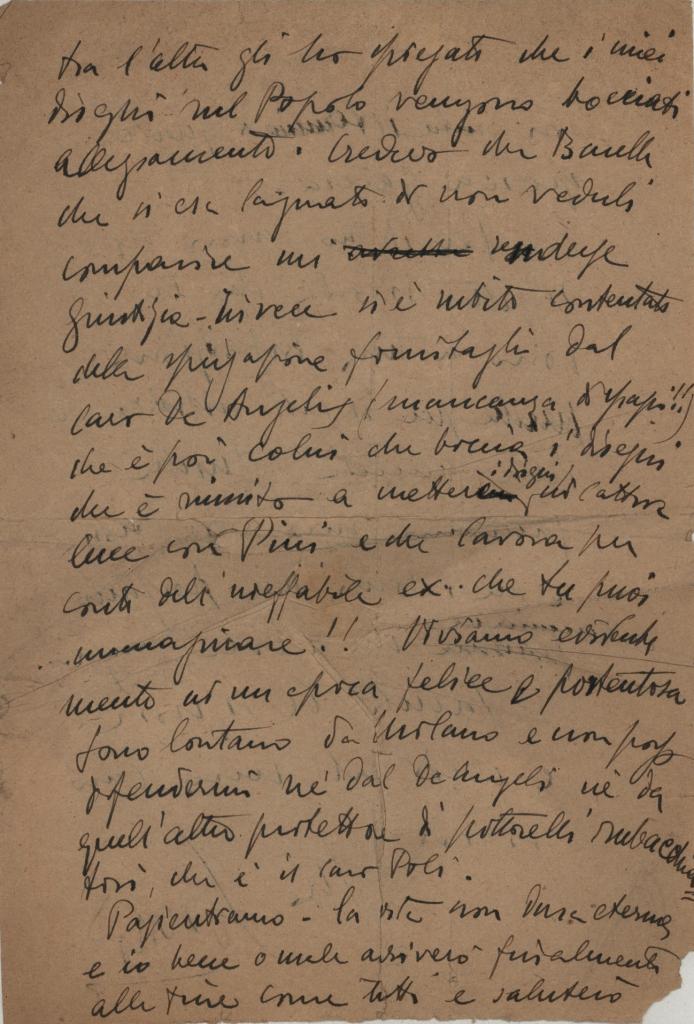 tra l'altro gli ho spiegato che i miei
disegni nel Popolo vengono bocciati
allegramente. Credevo che Barella
che si era lagnato di non vederli
comparire mi rendesse
giustizia - Invece si è subito contentato
della spiegazione fornitagli dal
caro De Angelis (mancanza di spazi!!)
che è poi colui che boccia i disegni
che è riuscito a mettere i disegni in cattiva
luce con Pini e che lavora per
conto dell'ineffabile ex.. che tu puoi
immaginare!! Viviamo evidente
mente in un epoca felice e portentosa
Sono lontano da Milano e non posso
difendermi nè dal De Angelis nè da
quell'altro protettore di pittorelli imbacchia=
tori, che è il caro Poli.
Pazientiamo - la vita non dura eterna
e io bene o male arriverò finalmente
alla fine come tutti e saluterò